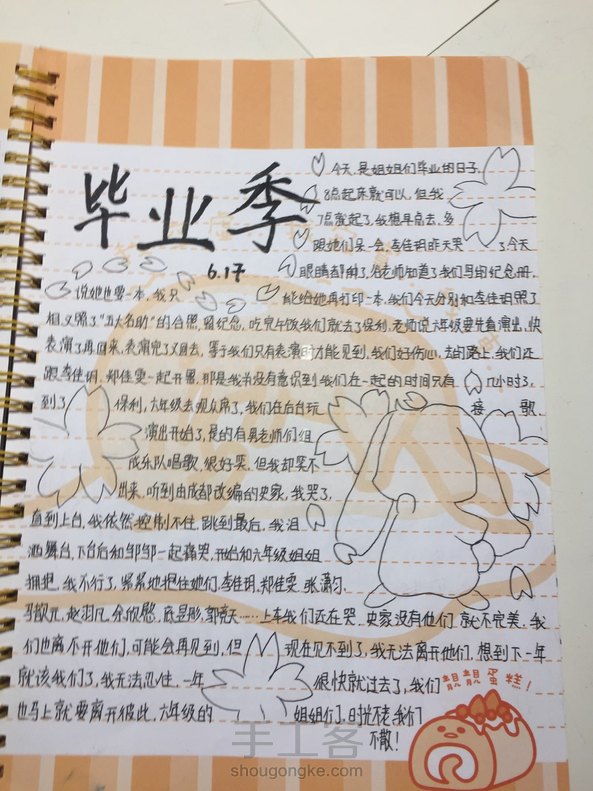 毕业季
6.17
今天,是姐姐们毕业的日子,
8点起床就可以,但我
7点就起了,我想早点去,多
跟她们呆一会,李佳玥昨天哭了,今天
眼睛都肿了,老师知道了我们写的纪念册,
说她也要一本,我只能给她再打印一本,我们今天分别和李佳玥照了
相,又照了"五大名助"的合照,留纪念,吃完午饭我们就去了保利,老师说六年级要先直演出,快
表演了再回来,表演完了又回去,等于我们只有表演时才能见到,我们好伤心,去的路上,我们还
跟李佳玥,郑佳雯一起开黑,那是我并没有意识到我们在一起的时间只有几小时了,
到了保利,六年级去观众席了,我们在后台玩接歌,
演出开始了,是的有奥老师们组
成乐队唱歌,很好笑,但我却笑不
出来,听到由成都改编的史家,我哭了,
直到上台,我依然控制不住,跳到最后,我泪
洒舞台,下台后和邹邹一起痛哭,开始和六年级姐姐
拥抱,我不行了,紧紧地抱住她们,李佳玥,郑佳雯,张潇匀,
……上车我们还在哭,史家没有他们,就不完美,我
们也离不开他们,可能会再见到,但现在见不到了,我无法离开他们,想到下一年
就该我们了,我无法忍住,一年很快就过去了,我们
也马上就要离开彼此,六年级的姐姐们,日我们
不散!
蛋糕!
手工客
shougongke.com